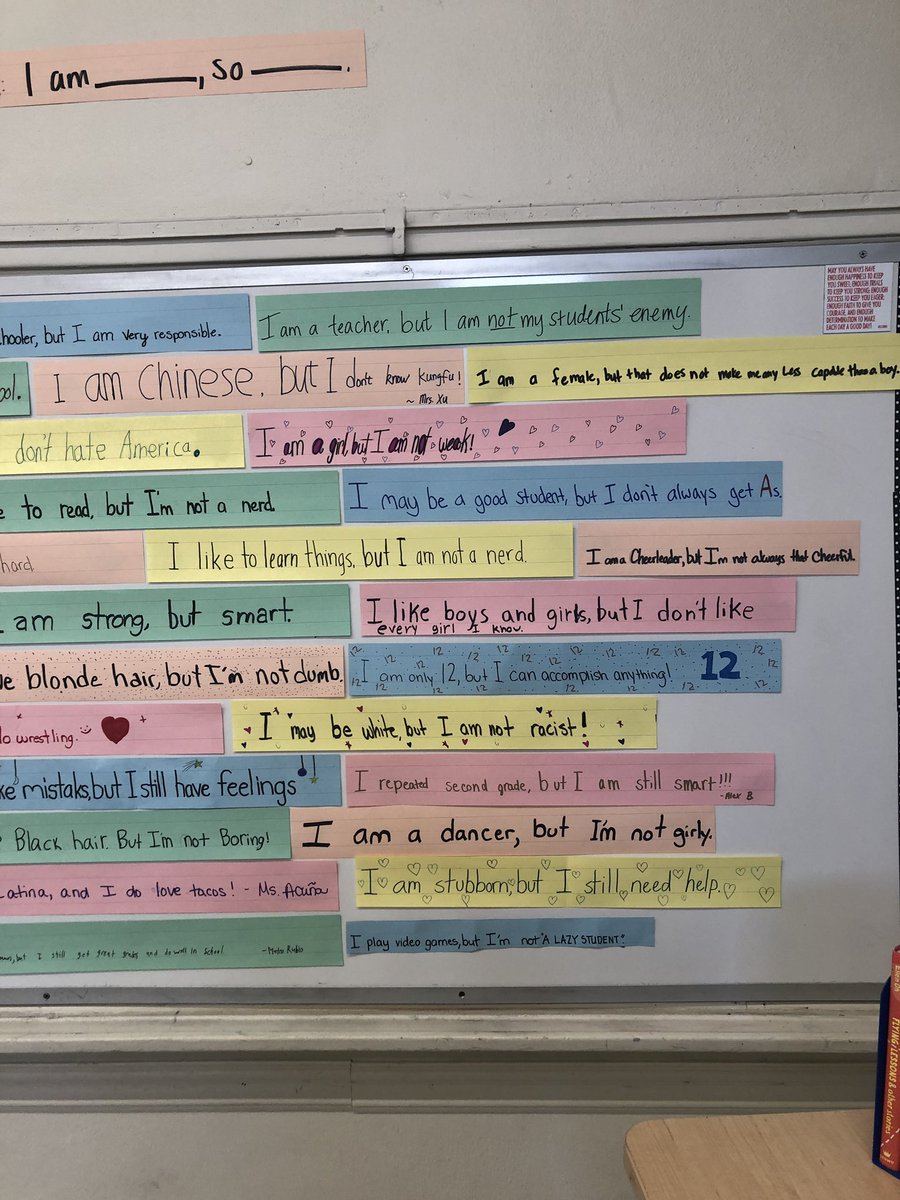 I am ______, so ______.
MAY YOU ALWAYS HAVE
ENOUGH HAPPINESS TO KEEP
YOU SWEET, ENOUGH TRIALS
TO KEEP YOU STRONG, ENOUGH
SUCCESS TO KEEP YOU EAGER,
ENOUGH FAITH TO GIVE YOU
COURAGE, AND ENOUGH
DETERMINATION TO MAKE
EACH DAY A GOOD DAY!
hooler, but I am very responsible.
I am a teacher, but I am not my students' enemy.
ool.
I am Chinese, but I don't know Kungfu!
~ Mrs. Xu
I am a female, but that does not make me any less capable than a boy.
don't hate America.
I am a girl, but I am not weak!
e to read, but I'm not a nerd.
I may be a good student, but I don't always get As.
hard.
I like to learn things, but I am not a nerd.
I am a Cheerleader, but I'm not always that cheerful.
I am strong, but smart.
I like boys and girls, but I don't like
every girl I know.
ve blonde hair, but I'm not dumb.
I am only 12, but I can accomplish anything! 12
do wrestling.
I may be white, but I am not racist!
ke mistaks, but I still have feelings
I repeated second grade, but I am still smart!!!
-Alex B.
Black hair. But I'm not Boring!
I am a dancer, but I'm not girly.
Latina, and I do love tacos! - Ms. Acuña
I am stubborn, but I still need help.
but I still get great grades and do well in school. -Mateo Rubio
I play video games, but I'm not "A LAZY STUDENT".
FLYING LESSONS & other stories